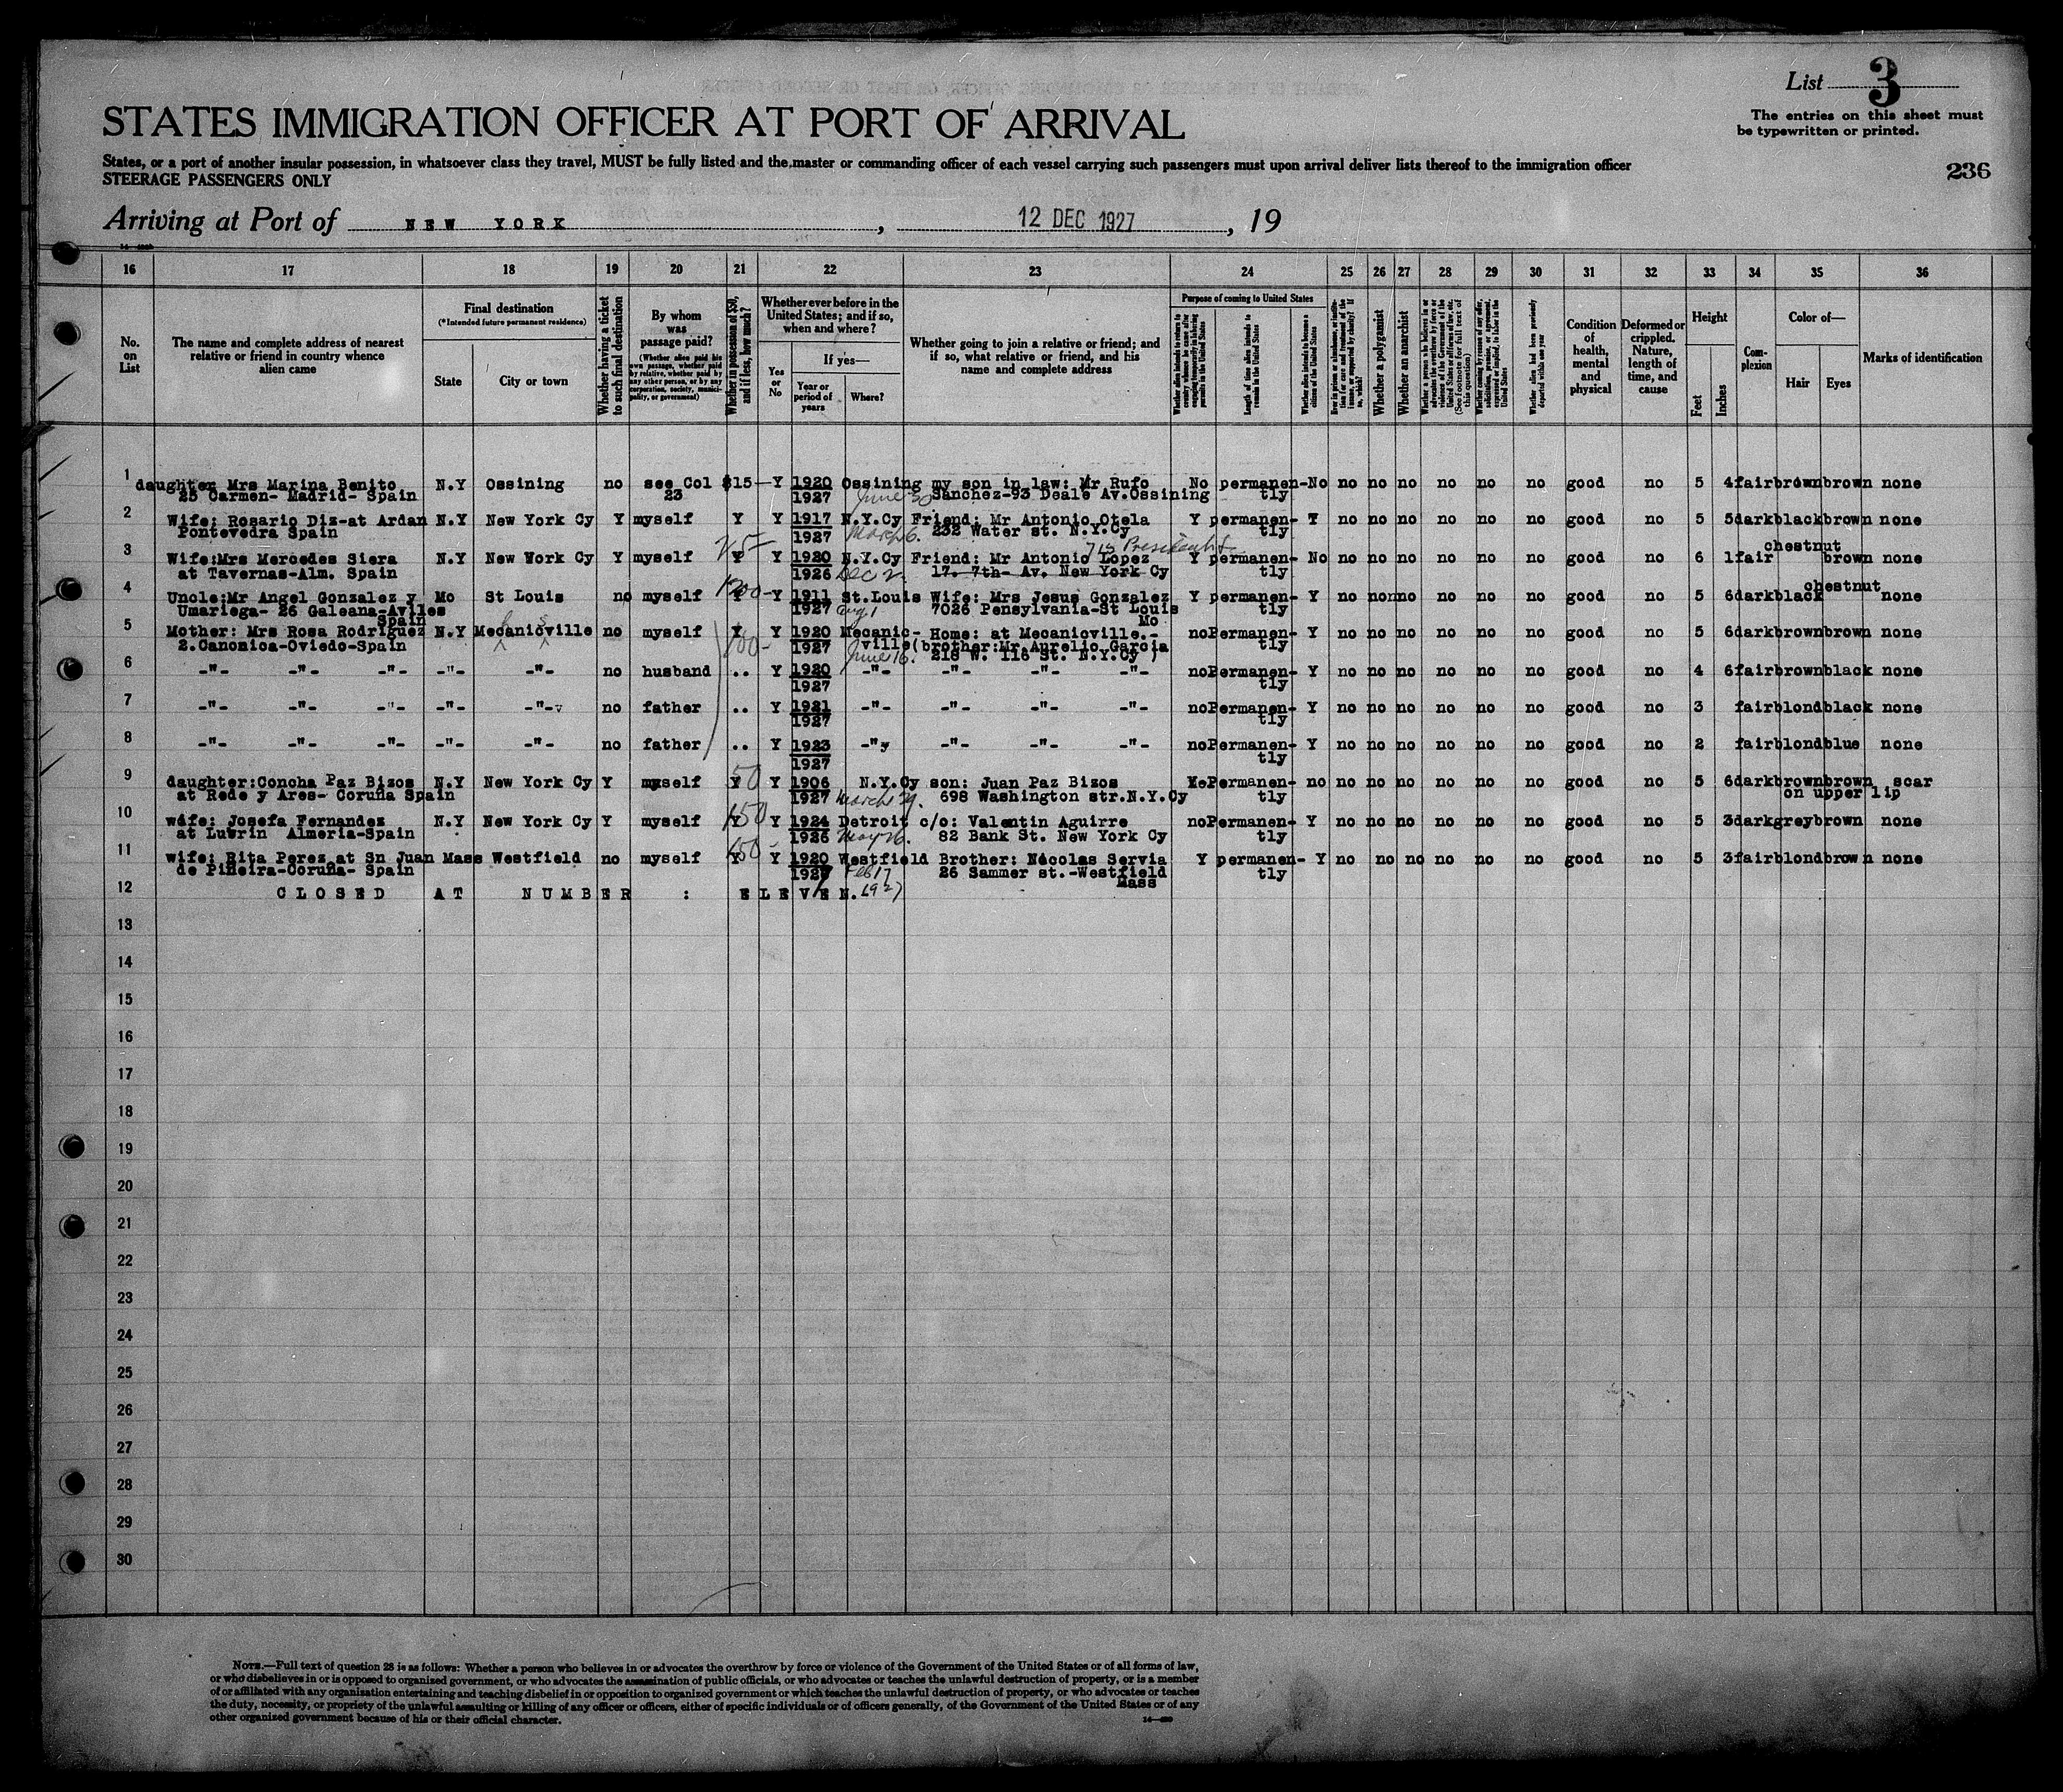 List 3
The entries on this sheet must
be typewritten or printed.
STATES IMMIGRATION OFFICER AT PORT OF ARRIVAL
States, or a port of another insular possession, in whatsoever class they travel, MUST be fully listed and the master or commanding officer of each vessel carrying such passengers must upon arrival deliver lists thereof to the immigration officer
STEERAGE PASSENGERS ONLY
236
Arriving at Port of NEW YORK, 12 DEC 1927, 19
16 17 18 19 20 21 22 23 24 25 26 27 28 29 30 31 32 33 34 35 36
No. on List
The name and complete address of nearest relative or friend in country whence alien came
Final destination
(*Intended future permanent residence)
State
City or town
Whether having a ticket to such final destination
By whom was passage paid?
(Whether alien paid his own passage, whether paid by relative, whether paid by any other person, or by any corporation, society, municipality, or government)
Whether in possession of $50, and if less, how much?
Whether ever before in the United States; and if so, when and where?
Yes or No
If yes—
Year or period of years
Where?
Whether going to join a relative or friend; and if so, what relative or friend, and his name and complete address
Purpose of coming to United States
Length of time alien intends to remain in the United States
Whether alien intends to become a citizen of the United States
Whether a polygamist
Whether an anarchist
Condition of health, mental and physical
Deformed or crippled. Nature, length of time, and cause
Height
Feet
Inches
Complexion
Color of—
Hair
Eyes
Marks of identification
1 daughter Mrs Marina Benito N.Y Ossining no see Col $15— Y 1920 Ossining my son in law: Mr Rufo No permanen- No no no no no no no good no 5 4 fair brown brown none
25 Carmen- Madrid- Spain 23 1927 June 30 Sanchez-93 Deale Av.Ossining tly
2 Wife: Rosario Diz-at Ardan N.Y New York Cy Y myself Y Y 1917 N.Y.Cy Friend: Mr Antonio Otela Y permanen- Y no no no no no no good no 5 5 dark black brown none
Pontevedra Spain 1927 March 6. 232 Water st. N.Y.Cy tly
3 Wife:Mrs Mercedes Siera N.Y New Work Cy Y myself Y Y 1920 N.Y.Cy Friend: Mr Antonio Lopez Y permanen- No no no no no no no good no 6 1 fair chestnut brown none
at Tavernas-Alm. Spain 1926 Dec 2. 17. 7th- Av. New York Cy tly
4 Uncle:Mr Angel Gonzalez y Mo St Louis no myself Y Y 1911 St.Louis Wife: Mrs Jesus Gonzalez Y permanen- Y no no no no no no good no 5 6 dark black chestnut none
Umariega- 26 Galeana-Aviles 1927 Aug 1 7026 Pensylvania-St Louis tly
Spain Mo
5 Mother: Mrs Rosa Rodriguez N.Y Mecanicville no myself Y Y 1920 Mecanic- Home: at Mecanicville.- no Permanen- Y no no no no no no good no 5 6 dark brown brown none
2.Canonica-Oviedo-Spain 100- 1927 ville (brother:Mr.Aurelio Garcia tly
June 16. 218 W. 116 St. N.Y.Cy )
6 -"- -"- -"- -"- -"- no husband .. Y 1920 -"- -"- -"- -"- no Permanen- Y no no no no no no good no 4 6 fair brown black none
1927 tly
7 -"- -"- -"- -"- -"- no father .. Y 1921 -"- -"- -"- -"- no Permanen- Y no no no no no no good no 3 fair blond black none
1927 tly
8 -"- -"- -"- -"- -"- no father .. Y 1923 -"- -"- -"- -"- no Permanen- Y no no no no no no good no 2 fair blond blue none
1927 tly
9 daughter:Concha Paz Bizos N.Y New York Cy Y myself Y 50 Y 1906 N.Y.Cy son: Juan Paz Bizos Permanen- no no no no no no no good no 5 6 dark brown brown scar
at Rede y Ares- Coruña Spain 1927 March 29. 698 Washington str.N.Y.Cy tly on upper lip
10 wife: Josefa Fernandez N.Y New York Cy Y myself Y 150 Y 1924 Detroit c/o: Valentin Aguirre no Permanen- Y no no no no no no good no 5 3 dark grey brown none
at Lubrin Almeria-Spain 1926 May 26. 82 Bank St. New York Cy tly
11 wife: Rita Perez at Sn Juan Mass Westfield no myself Y 150- Y 1920 Westfield Brother: Nicolas Servia Y permanen- Y no no no no no no good no 5 3 fair blond brown none
de Piñeira-Coruña- Spain 1927 Feb 17 26 Sammer st.-Westfield tly
1927 Mass
12 CLOSED AT NUMBER : ELEVEN.
13
14
15
16
17
18
19
20
21
22
23
24
25
26
27
28
29
30
NOTE.—Full text of question 28 is as follows: Whether a person who believes in or advocates the overthrow by force or violence of the Government of the United States or of all forms of law,
or who disbelieves in or is opposed to organized government, or who advocates the assassination of public officials, or who advocates or teaches the unlawful destruction of property, or is a member
of or affiliated with any organization entertaining and teaching disbelief in or opposition to organized government or which teaches the unlawful destruction of property, or who advocates or teaches
the duty, necessity, or propriety of the unlawful assaulting or killing of any officer or officers, either of specific individuals or of officers generally, of the Government of the United States or of any
other organized government because of his or their official character.